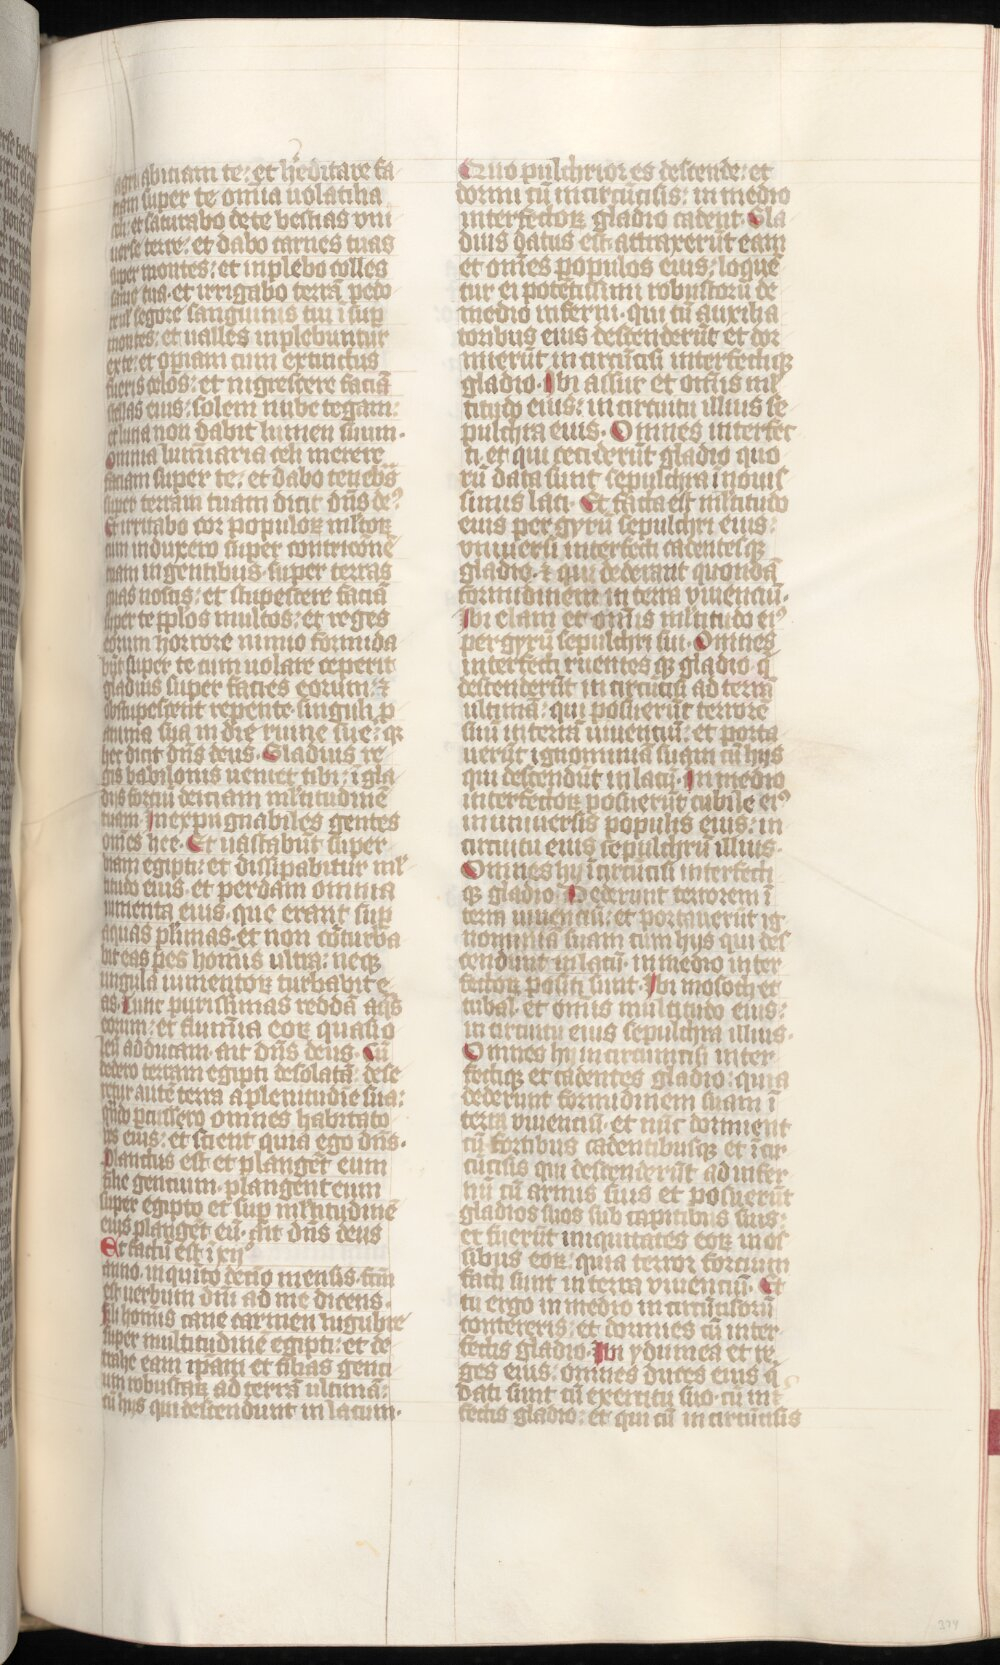 agri abiciam te: et h̾editare fa
ciam super te omnia uolatilia
celi: et saturabo de te bestias uni
uerse terre: et dabo carnes tuas
super montes: et inplebo colles
sanie tua. et irrigabo terrā pedo
segore sanguinis tui i sup
montes: et ualles inplebuntur
ex te: et opiam cum extinctus
fueris celos: et nigrescere faciā
stellas eius: solem nube tegam:
et luna non dabit lumen suum.
Omnia luminaria celi merere
faciam super te: et dabo tenebs
super terram tuam dicit dn̄s de⁹
Et irritabo cor populoꝝ ml̾toꝝ
cum induxero super contricōne
tuam in gentibus super terras
quas nostis: et stupescere faciā
super te pplos multos: et reges
eorum horrore nimio formida
būt super te cum uolare ceperit
gladius super facies eorum: ⁊
obstupescent repente singuli p̄
anima sua in die ruine sue: qꝫ
hec dicit dn̄s deus. Gladius re
gis babilonis ueniet tibi: i gla
diis fortiū deiciam ml̾titudinē
tuam. Inexpugnabiles gentes
om̄es hee. Et uastabūt super
biam egipti: et dissipabitur ml̾
titudo eius. et perdam omnia
iumenta eius. que erant sup
aquas pl̾imas. et non cōturba
bit eas pes hom̄is ultra: neqꝫ
ungula iumentoꝝ turbabit e
as. Tunc purissimas reddā aqs
eorum: et flumīa eoꝝ quasi o
leū adducam. ait dn̄s deus. Cū
dedero terram egipti desolatā: dese
retur autē terra a plenitudīe sua:
qn̄do pcussero omnes habitato
res eius: et scient quia ego dn̄s.
Planctus est et plangēt eum
filie gentium. plangent eum
super egipto et sup ml̾titudinē
eius plangēt eū. ait dn̄s deus
Et factū est i xii⁰
anno. in quīto decīo mensis. fctm
est uerbum dn̄i ad me dicens.
Fili hom̄is cane carmen lugubre
super multitudinē egipti: et de
trahe eam ipam et filias genti
um robustaꝝ ad terrā ultimā:
cū hiis qui descendunt in lacum.
Quo pulchrior es descende: et
dormi cū incircūcisis: in medio
interfectoꝝ gladio cadent. Gla
dius datus est. attraxerūt eam
et om̄es populos eius: loque
tur ei potētissimi robustorū de
medio inferni. qui cū auxilia
toribus eius descenderūt et dor
mierūt incircūcisi interfectiqꝫ
gladio. Ibi assur et om̄is ml̾
titudo eius: in circuitu illius se
pulchra eius. Omnes interfec
ti. et qui ceciderūt gladio quo
rū data sunt sepulchra i nouis
simis laci. Et facta est ml̾titudo
eius per gyrū sepulchri eius:
vniuersi interfecti cadentesqꝫ
gladio. ⁊ qui dederant quondā
formidinem in terra viuenciū.
Ibi elam et om̄is ml̾titudo ei⁹
per gyrū sepulchri sui. Omnes
interfecti ruentesqꝫ gladio q̄
descenderūt in circūcisi ad terrā
ultimā: qui posuerūt terrorē
suū in terra viuenciū: et porta
uerūt ignominiā suam cū hiis
qui descendūt in lacū. In medio
interfectoꝝ posuerūt cubile ei⁹
in uniuersis populis eius: in
circuitu eius sepulchrū illius.
Omnes hij īcircūcisi interfecti
qꝫ gladio. Dederunt terrorem ī
terra viuenciū: et portauerūt ig
nominiā suam cum hiis qui des
cendunt in lacū. in medio inter
fectoꝝ positi sunt. Ibi mosoch et
tubal. et omīs multitudo eius:
in circuitu eius sepulchra illius.
Omnes hij incircuncisi inter
fectiqꝫ et cadentes gladio: quia
dederunt formidinem suam ī
terra viuenciū. et nūc dormient
cū fortibus cadentibusqꝫ et īcir
cūcisis qui descenderūt ad infer
nū cū armis suis et posuerūt
gladios suos sub capitibus suis:
et fuerūt iniquitates eoꝝ in os
sibus eoꝝ: quia terror fortium
facti sunt in terra viuenciū. Et
tu ergo in medio incircūcisorū
contereris: et dormies cū inter
fectis gladio. Ibi ydumea et re
ges eius: om̄es duces eius q̄
dati sunt cū exercitu suo. cū int̾
fectis gladio: et qui cū incircūcisis
374